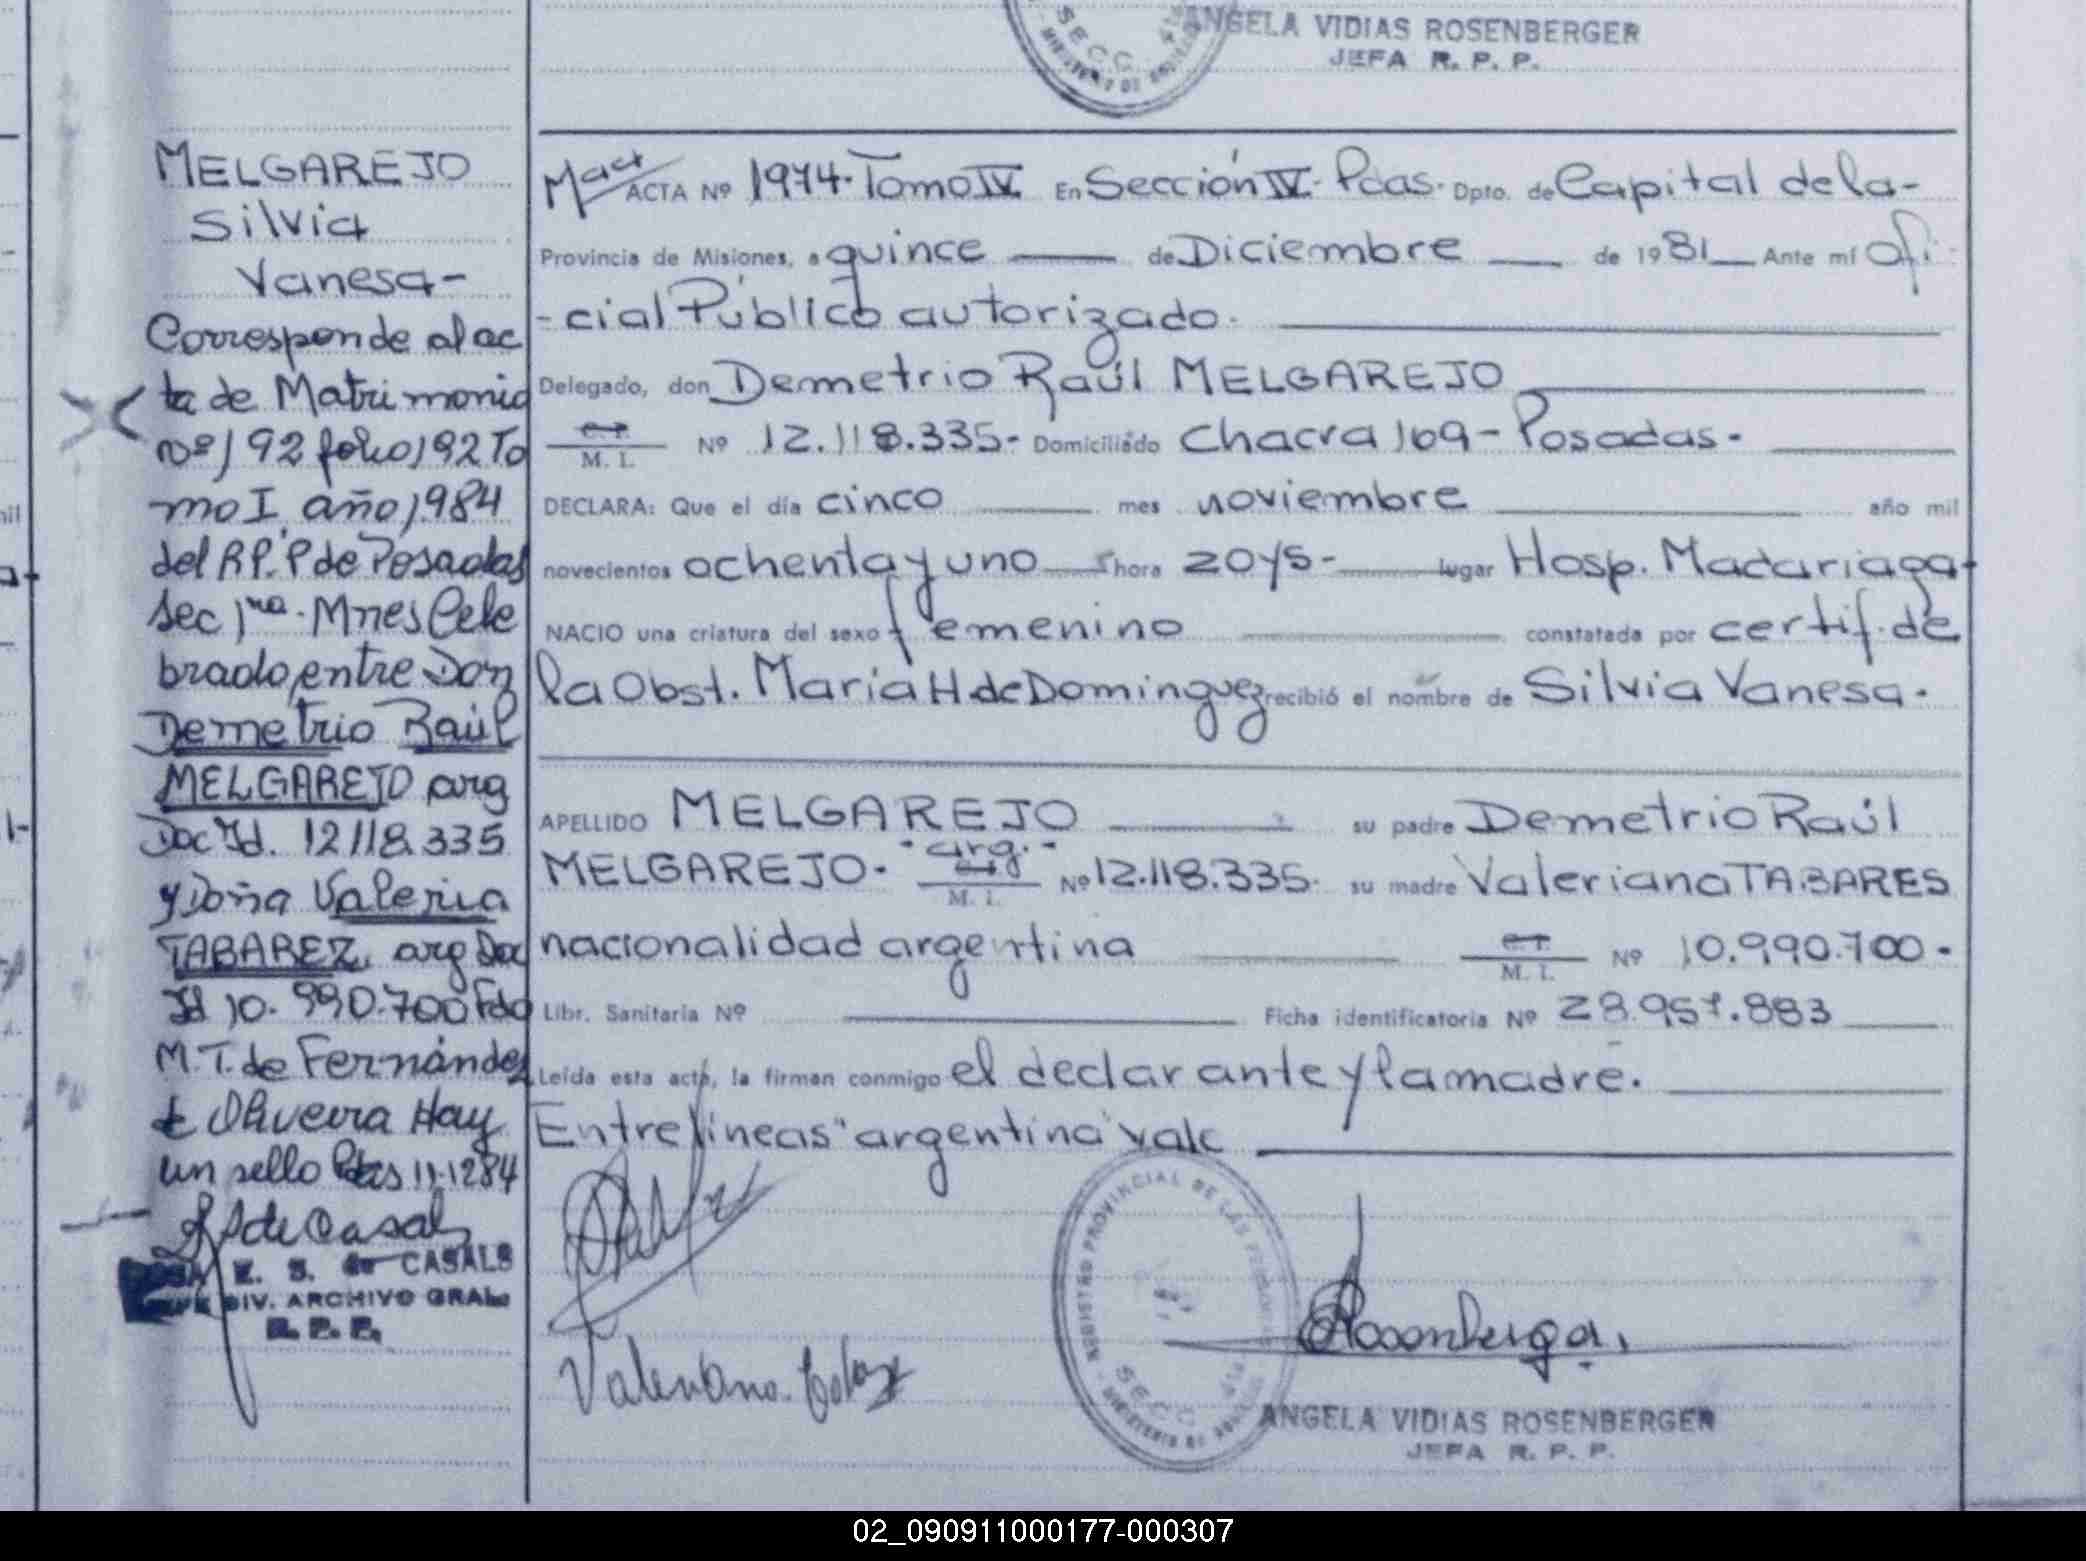 ANGELA VIDIAS ROSENBERGER
JEFA R. P. P.
SECC
MELGAREJO
Silvia
Vanesa-
Corresponde al ac
ta de Matrimonio
nº 192 folio 192 To
mo I año 1984
del R.P.P de Posadas
sec 1ra. Mnes Cele
brado, entre Don
Demetrio Raúl
MELGAREJO arg
Doc Id. 12118.335
y Doña Valeria
TABAREZ arg Doc
Id 10.990.700 Fdo
M.T. de Fernández
de Oliveira Hay
un sello Pdas 11-12 84
de Casals
E. S. de CASALS
DIV. ARCHIVO GRAL
R. P. P.
ACTA Nº 1974. Tomo IV En Sección IV. Pdas. Dpto. de Capital de la-
Provincia de Misiones, a quince de Diciembre de 1981 Ante mí Ofi-
-cial Público autorizado.
Delegado, don Demetrio Raúl MELGAREJO
M. I. Nº 12.118.335- Domiciliado Chacra 169- Posadas-
DECLARA: Que el día cinco mes noviembre año mil
novecientos ochenta y uno hora 20 y 5- lugar Hosp. Madariaga-
NACIO una criatura del sexo femenino constatada por certif. de
la Obst. María H. de Dominguez recibió el nombre de Silvia Vanesa.
APELLIDO MELGAREJO su padre Demetrio Raúl
MELGAREJO- "arg." M. I. Nº 12.118.335. su madre Valeriana TABARES
nacionalidad argentina M. I. Nº 10.990.700-
Libr. Sanitaria Nº Ficha identificatoria Nº 28.957.883
Leída esta acta, la firman conmigo el declarante y la madre.
Entre líneas "argentina" vale
REGISTRO PROVINCIAL DE LAS PERSONAS
SECC
Rosenberger
ANGELA VIDIAS ROSENBERGER
JEFA R. P. P.
02_090911000177-000307